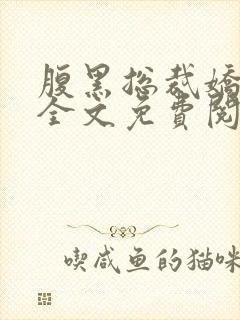 腹黑总裁嬌
全文免費閱
喫咸鱼的猫咪